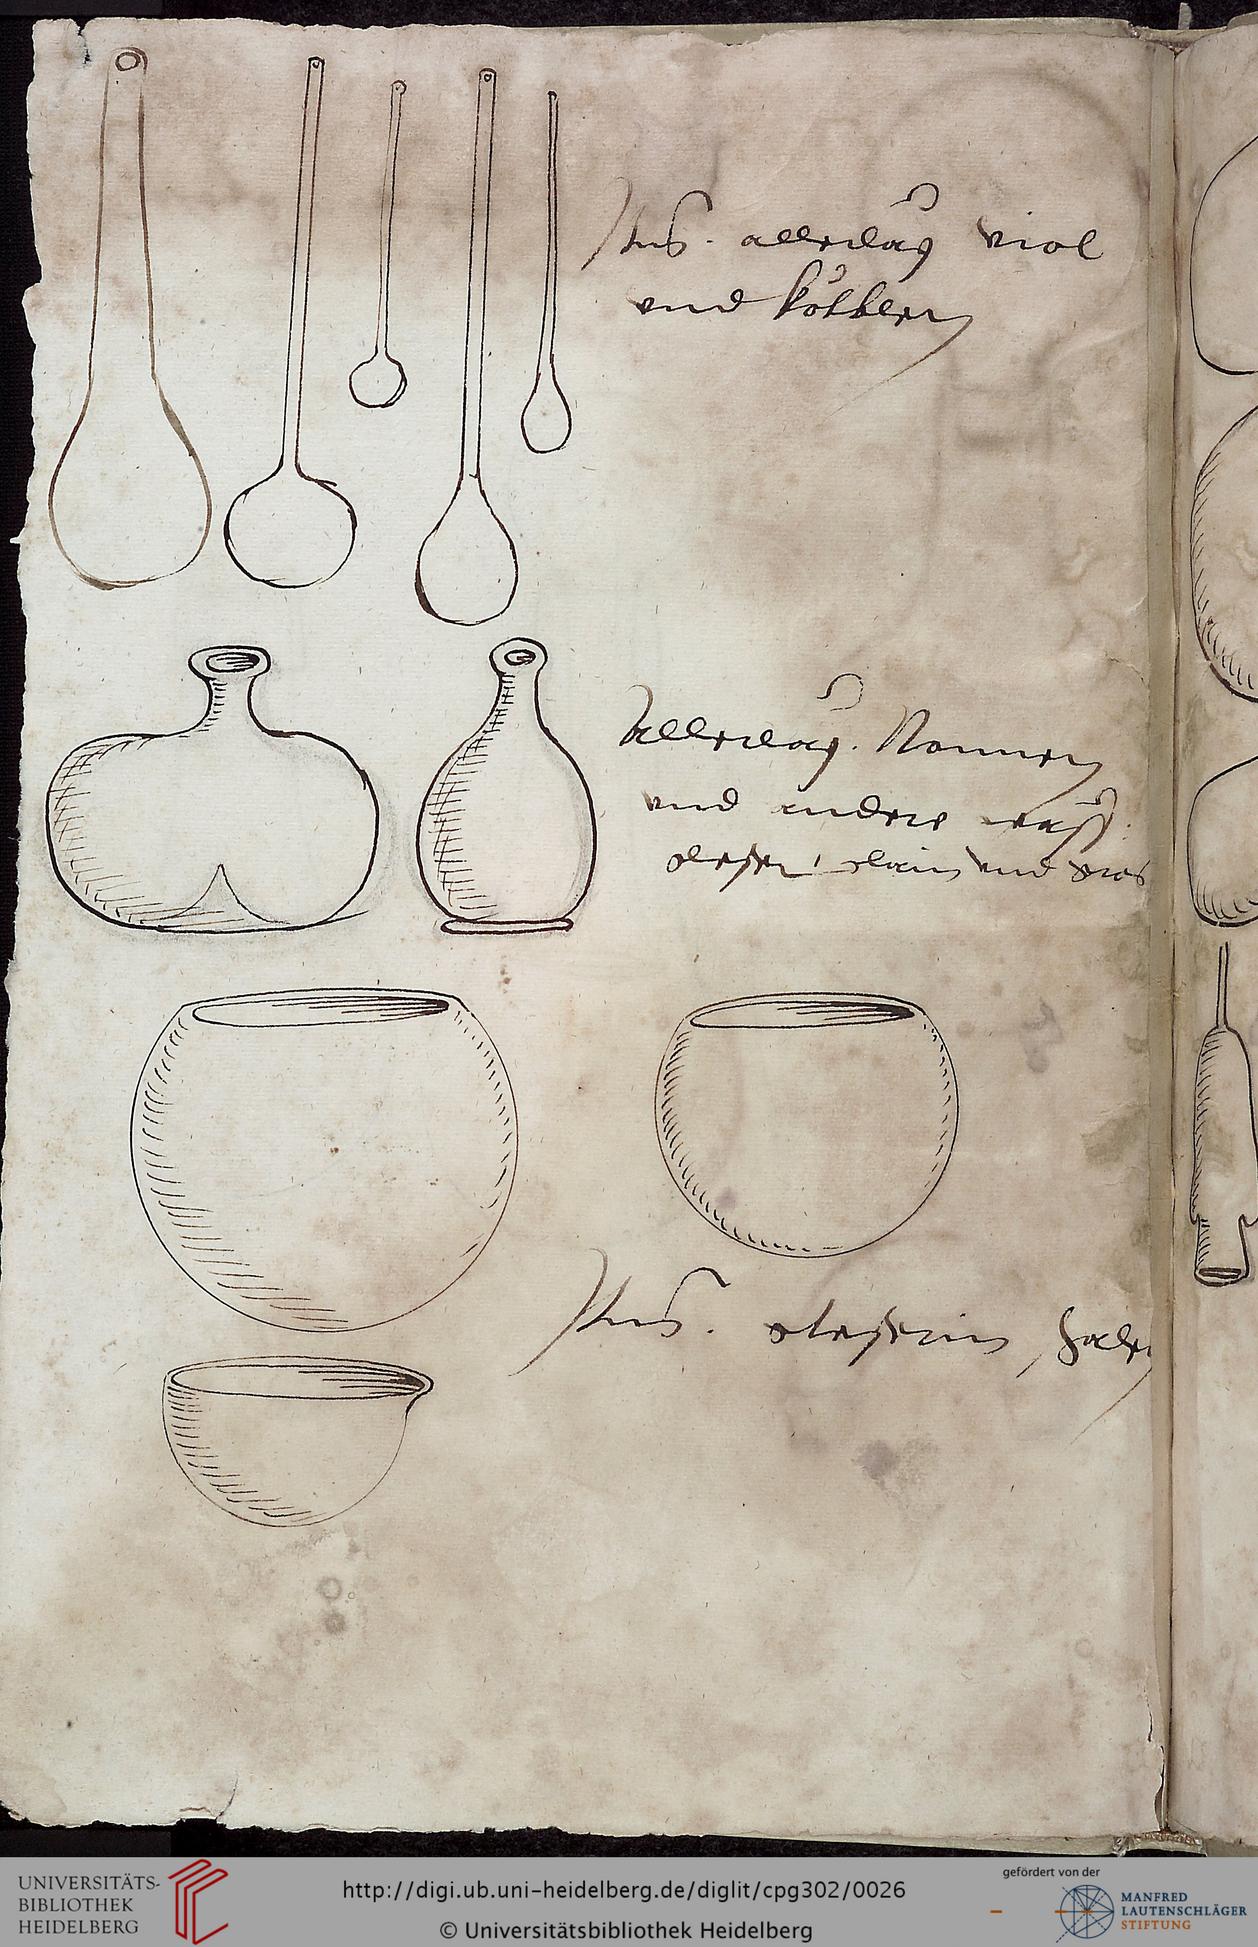 Itͤs. allerlaÿ viol
vnd kolben
Allerlaÿ. Nonnen
vnd andere
gleser, klain vnd gros
Itͤs. gleserin
UNIVERSITÄTS-
BIBLIOTHEK
HEIDELBERG
http://digi.ub.uni-heidelberg.de/diglit/cpg302/0026
© Universitätsbibliothek Heidelberg
gefördert von der
MANFRED
LAUTENSCHLÄGER
STIFTUNG